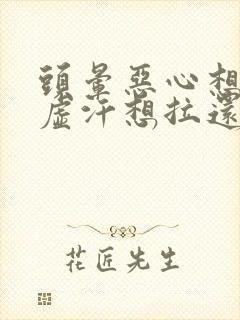 頭暈惡心想
虛汗想拉還
花匠先生